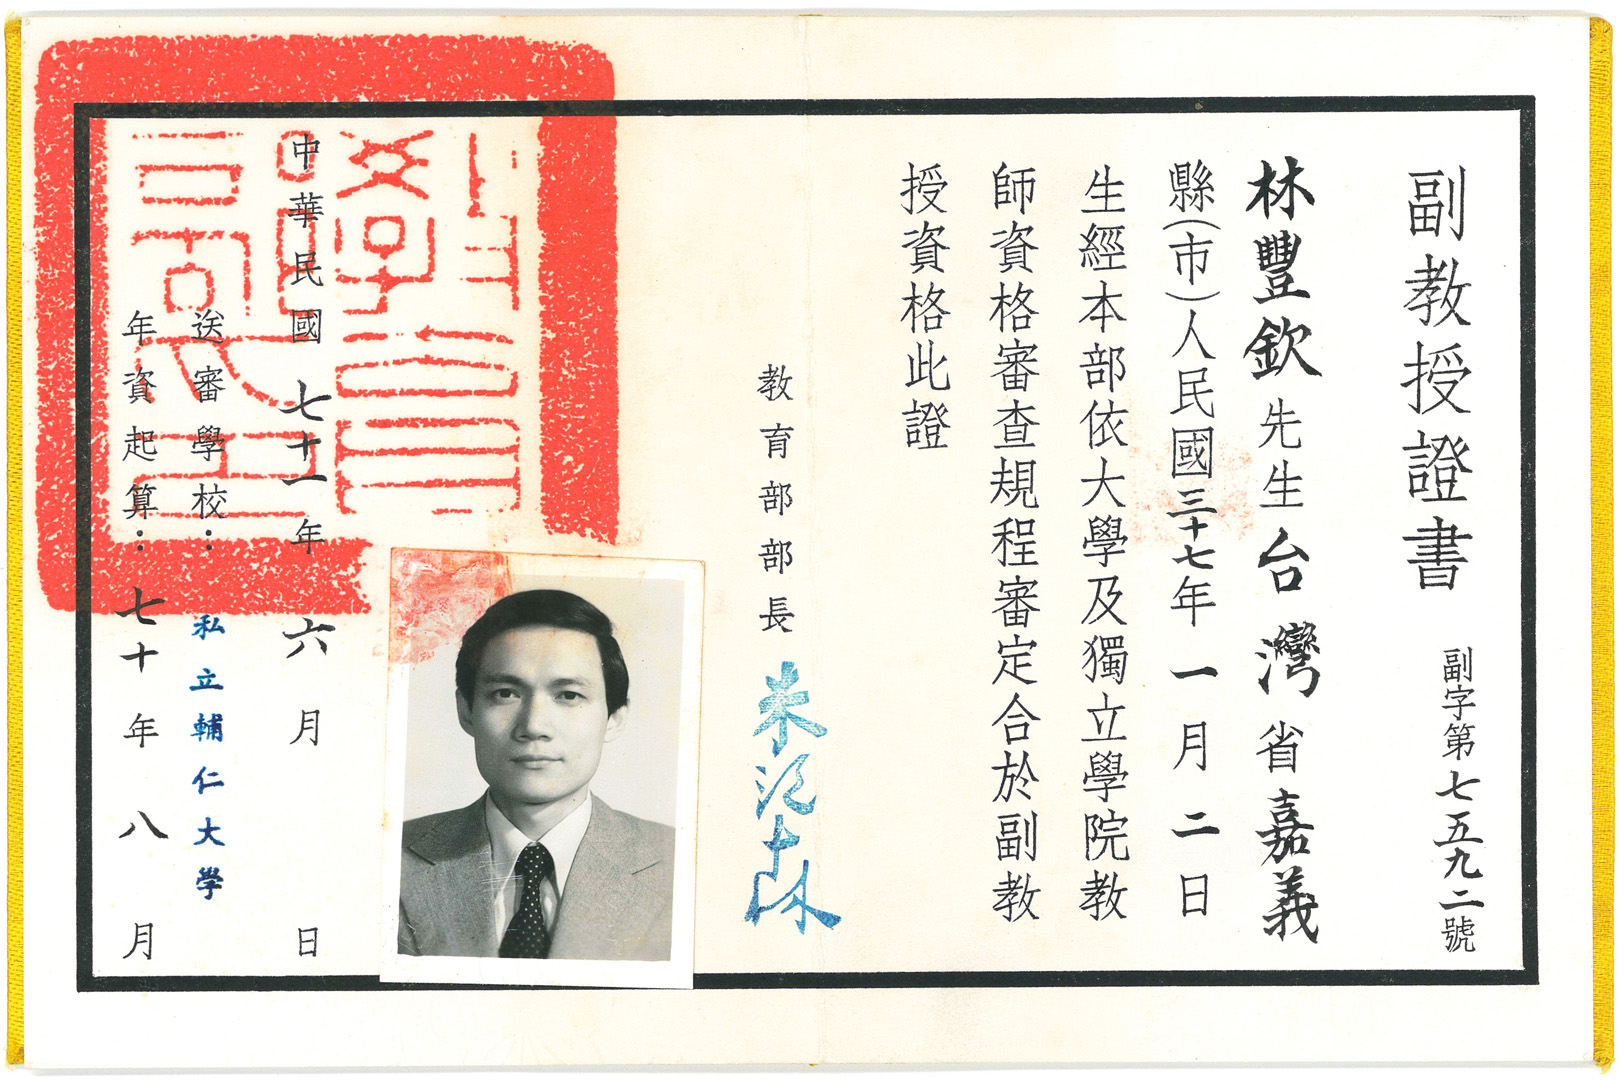 副教授證書
副字第七五九二號
林豐欽先生台灣省嘉義
縣(市)人民國三十七年一月二日
生經本部依大學及獨立學院教
師資格審查規程審定合於副教
授資格此證
教育部部長 朱滙森
中華民國七十一年六月日
送審學校：私立輔仁大學
年資起算：七十年八月